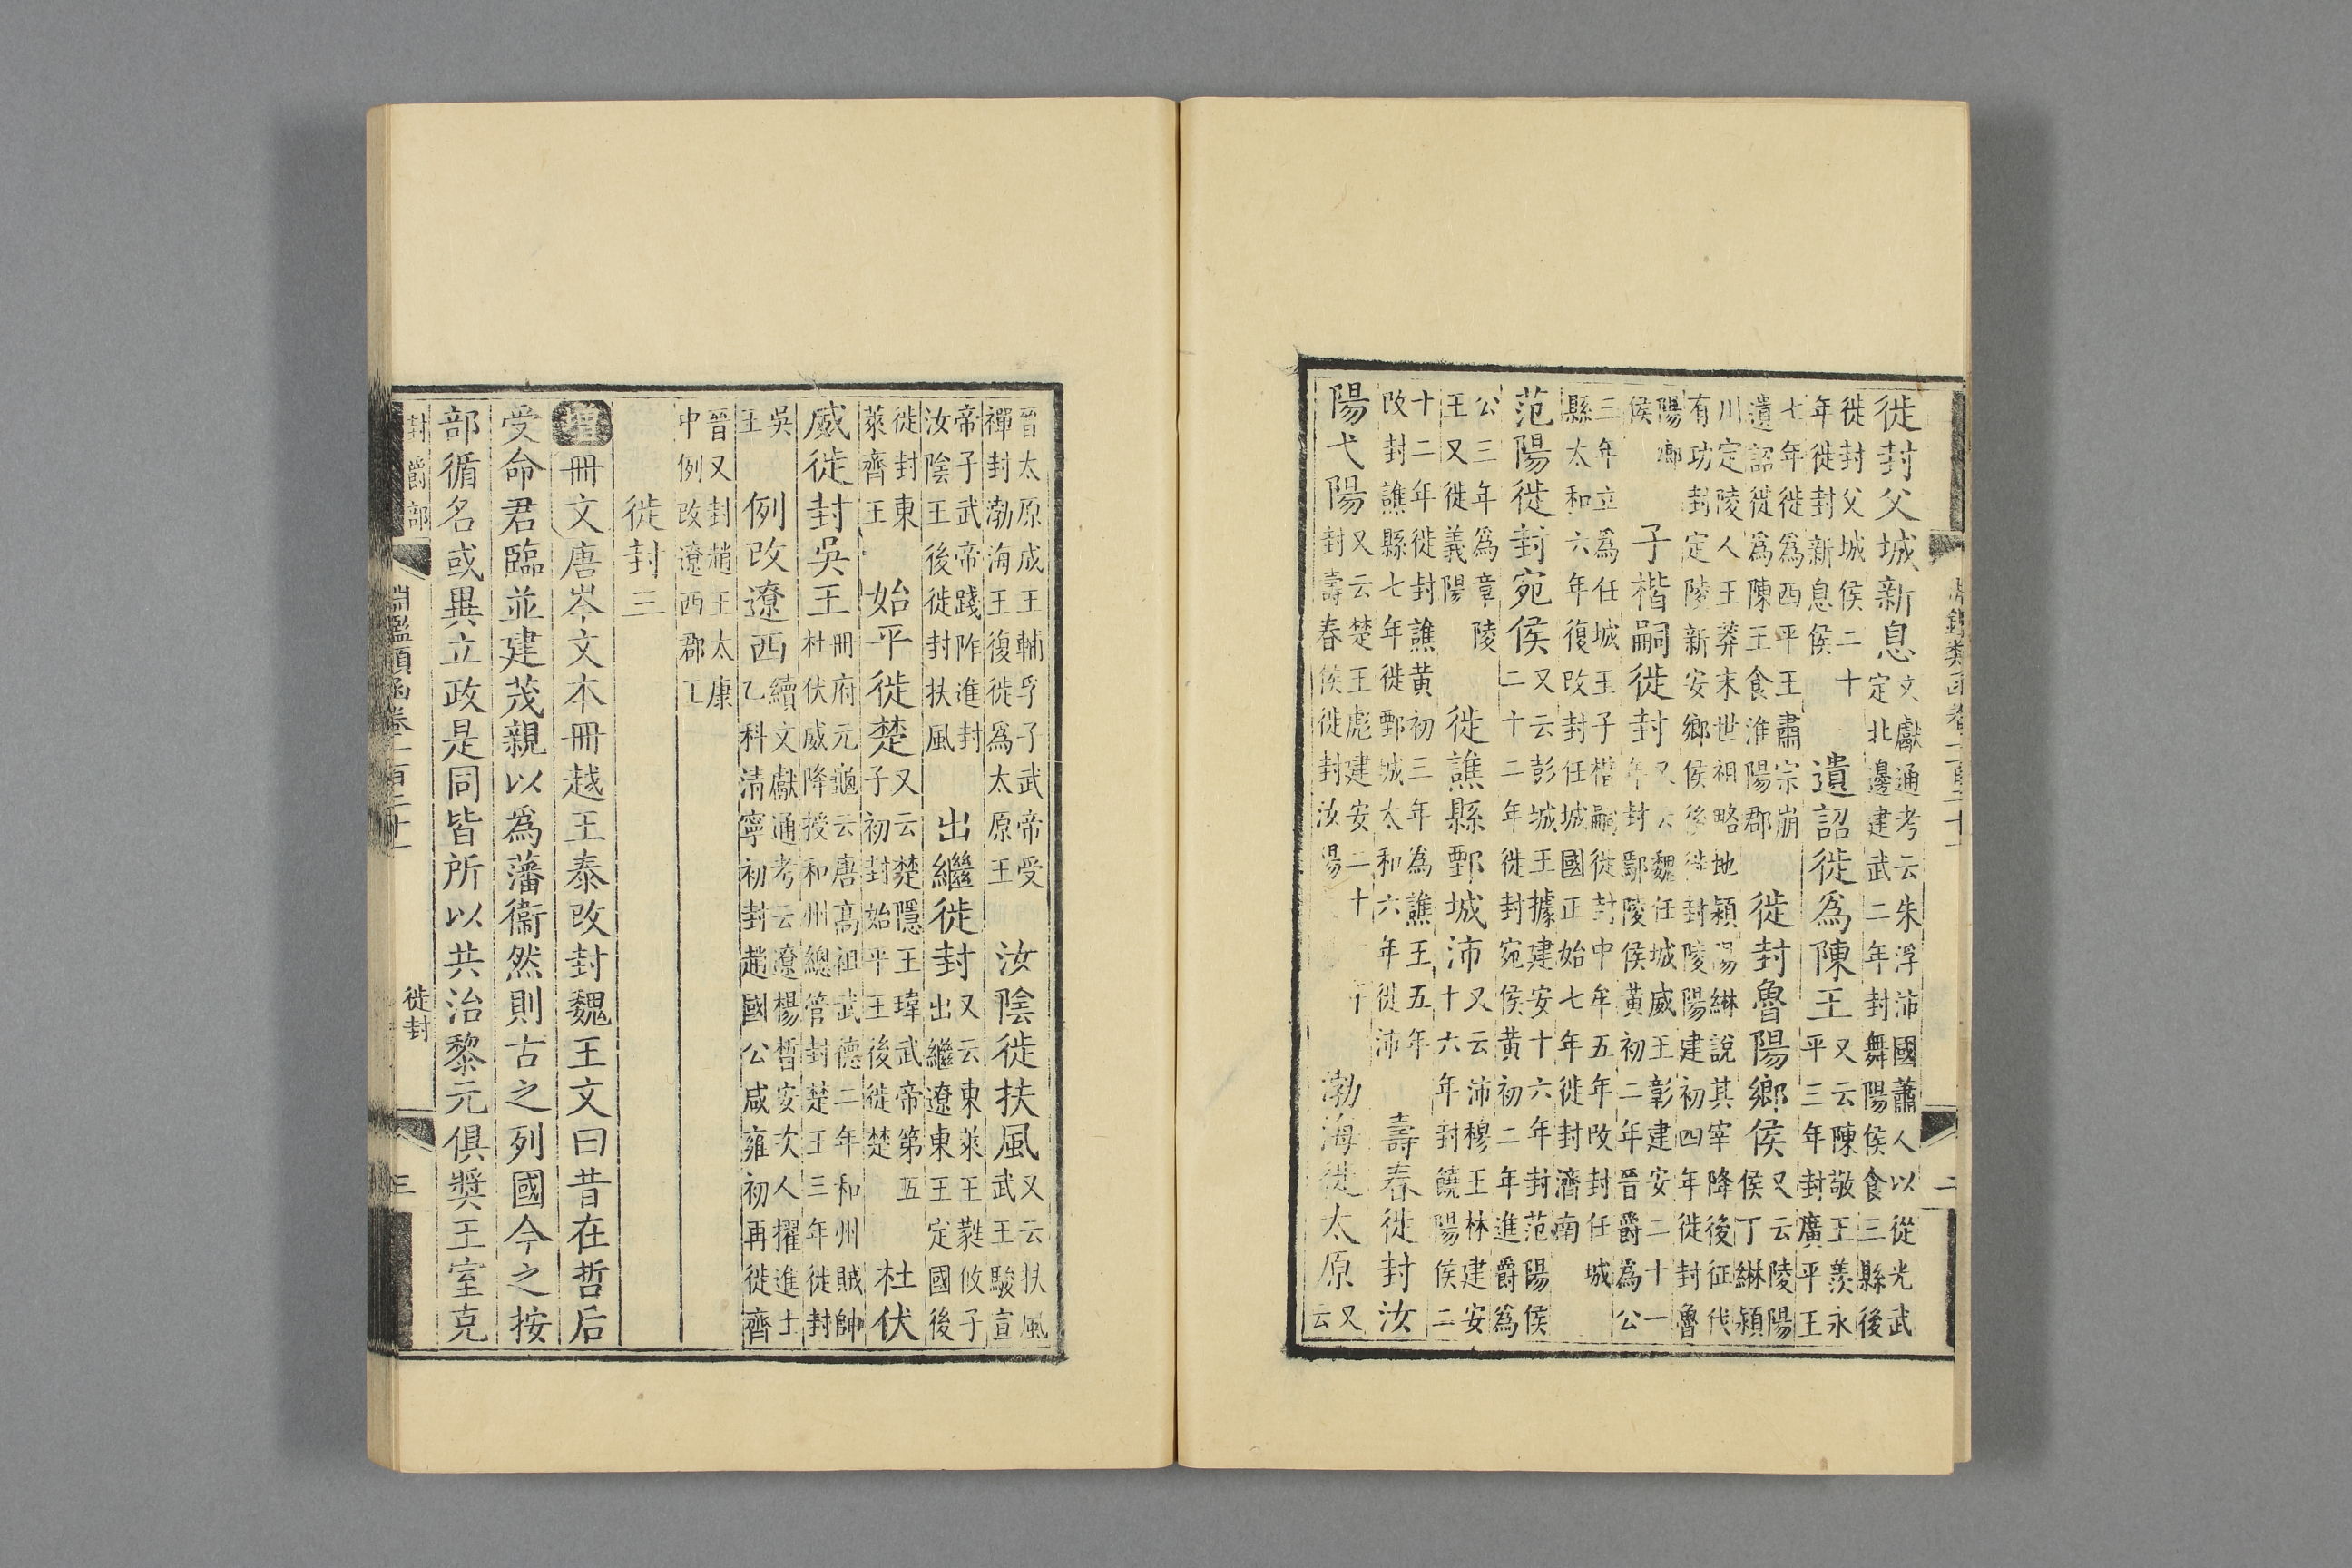 徙封父城新息
文獻通考云朱浮沛國蕭人以從光武
定北邊建武二年封舞陽侯食三縣後
徙封父城侯二十
年徙封新息侯
遺詔徙爲陳王
又云陳敬王羨永
平三年封廣平王
七年徙爲西平王肅宗崩
遺詔徙爲陳王食淮陽郡
徙封魯陽鄉侯
又云陵陽
侯丁綝潁
川定陵人王莽末世祖略地潁陽綝說其宰降後征伐
有功封定陵新安鄉侯後徙封陵陽建初四年徙封魯
陽鄉
侯
子楷嗣徙封
又云魏任城威王彰建安二十一
年封鄢陵侯黃初二年晉爵爲公
三年立爲任城王子楷嗣徙封中牟五年改封任城
縣太和六年復改封任城國正始七年徙封濟南
范陽徙封宛侯
又云彭城王據建安十六年封范陽侯
二十二年徙封宛侯黃初二年進爵爲
公三年爲章陵
王又徙義陽
徙譙縣鄄城沛
又云沛穆王林建安
十六年封饒陽侯二
十二年徙封譙黃初三年爲譙王五年
改封譙縣七年徙鄄城太和六年徙沛
壽春徙封汝
陽弋陽
又云楚王彪建安二十
封壽春侯徙封汝陽
渤海徙太原
又
云
淵鑑類函卷一百二十一
二
晉太原成王輔孚子武帝受
禪封渤海王復徙爲太原王
汝陰徙扶風
又云扶風
武王駿宣
帝子武帝踐阼進封
汝陰王後徙封扶風
出繼徙封
又云東萊王蕤攸子
出繼遼東王定國後
徙封東
萊齊王
始平徙楚
又云楚隱王瑋武帝第五
子初封始平王後徙楚
杜伏
威徙封吳王
冊府元龜云唐高祖武德二年和州賊帥
杜伏威降授和州總管封楚王三年徙封
吳
王
例改遼西
續文獻通考云遼楊晳安次人擢進士
乙科清寧初封趙國公咸雍初再徙齊
晉又封趙王太康
中例改遼西郡王
徙封三
增冊文唐岑文本冊越王泰改封魏王文曰昔在哲后
受命君臨並建茂親以爲藩衞然則古之列國今之按
部循名或異立政是同皆所以共治黎元俱奬王室克
封爵部
淵鑑類函卷一百二十一
徙封
三